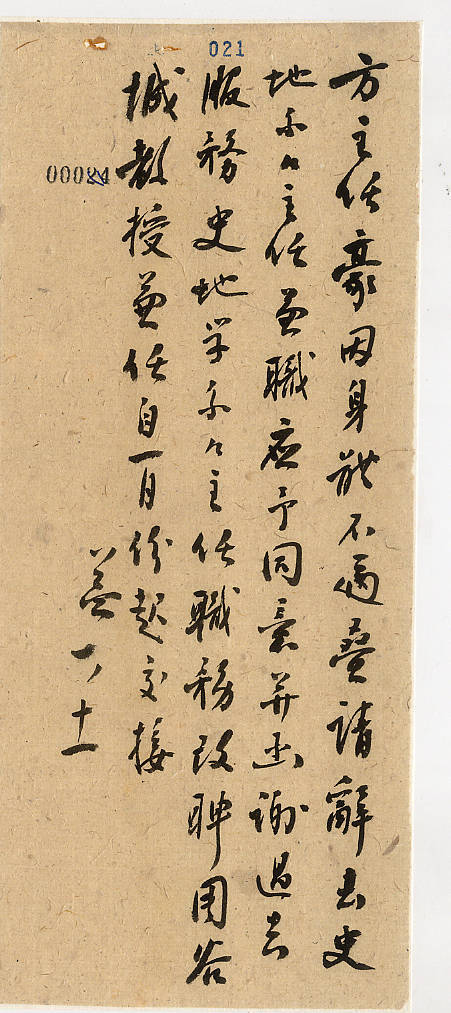 021
00084
方主任豪因身體不適叠請辭去史
地系々主任兼職应予同意并函謝過去
服務史地学系々主任職務改聘周谷
城教授兼任自一月份起交接
益 一、十一